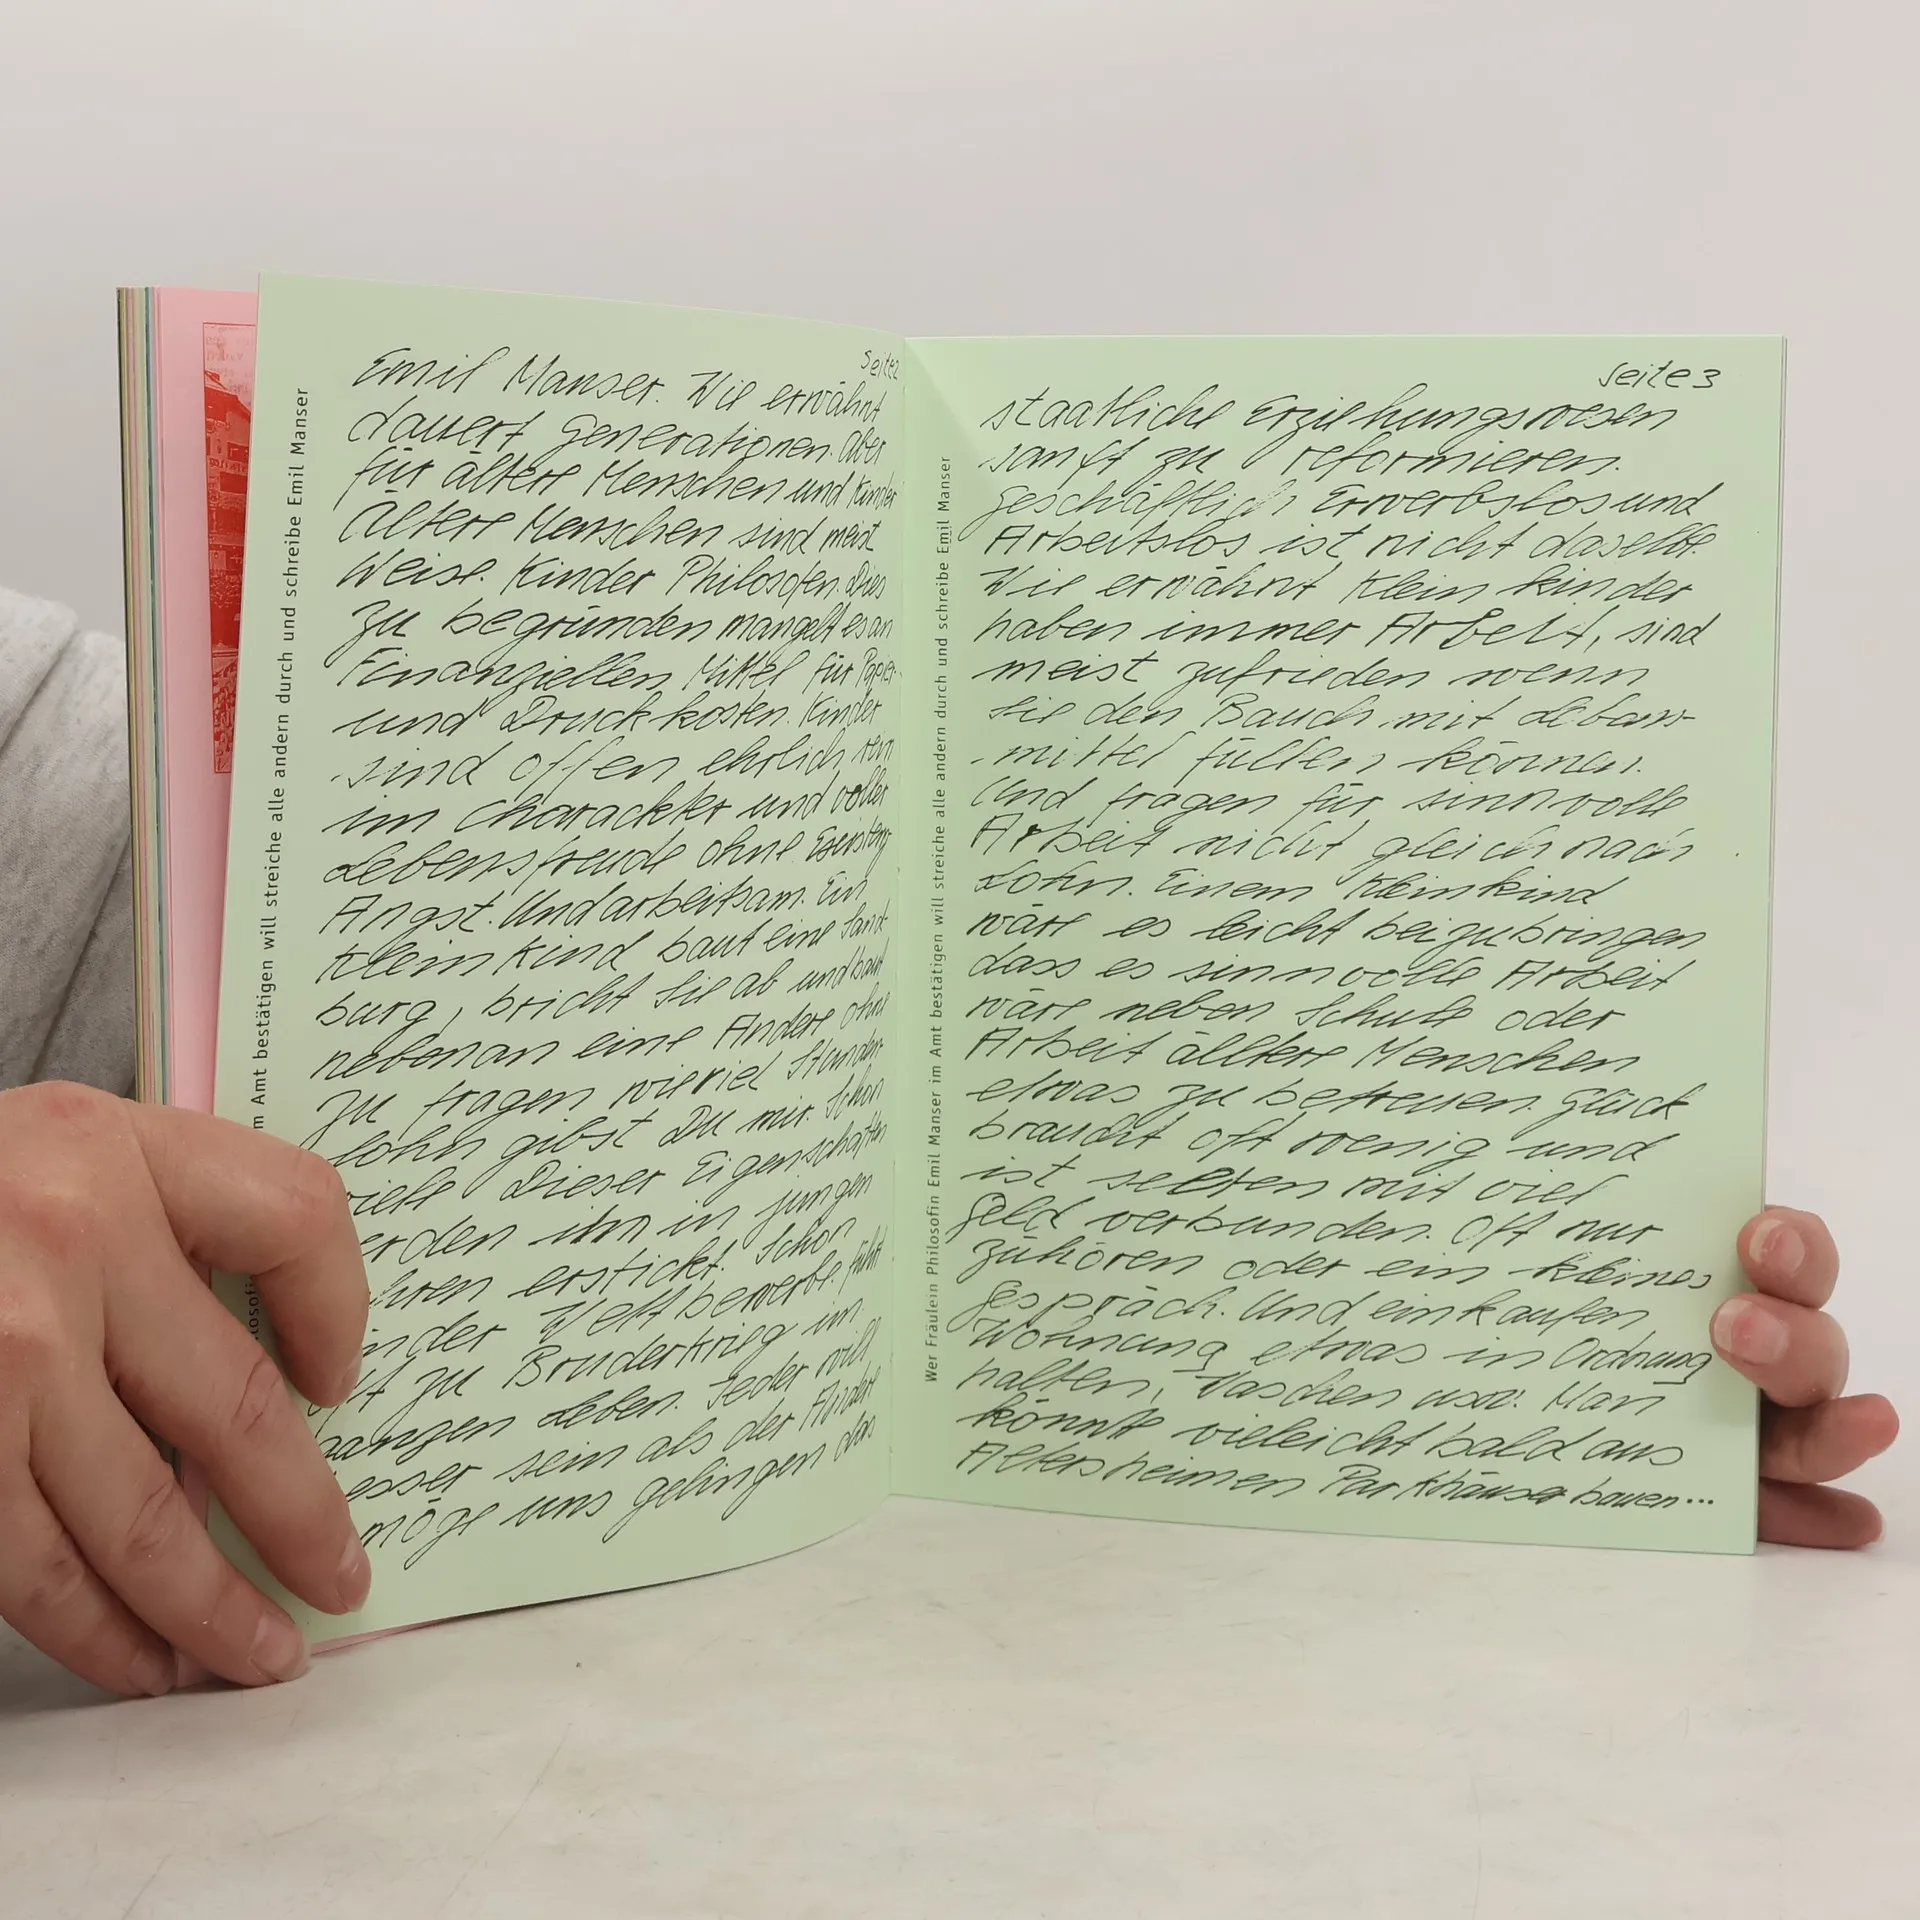 Seite2
Emil Manser. Wie erwähnt
dauert Generationen. Aber
für ältere Menschen und Kinder
Ältere Menschen sind meist
Weise. Kinder Philosofen. Dies
zu begründen mangelt es an
Finanziellen Mittel für Papier-
und Druckkosten. Kinder
sind offen ehrlich rein
im Charackter und voller
Lebensfreude ohne
Angst. Und arbeitsam. Ein
Kleinkind baut eine Sand-
burg, bricht sie ab und baut
nebenan eine Andere ohne
zu fragen wieviel Stunden-
lohn gibst Du mir. Schon
viele Dieser Eigenschaften
erden ihm in jungen
hren erstickt. Schon
in der Weltbewerbe. führt
oft zu Bruderkrieg im
ganzen Leben. Jeder will
esser sein als der Andere
möge uns gelingen das
m Amt bestätigen will streiche alle andern durch und schreibe Emil Manser
Seite 3
staatliche Erziehungswesen
sanft zu reformieren.
Geschäftlich Erwerbslos und
Arbeitslos ist nicht daselbe.
Wie erwähnt Klein kinder
haben immer Arbeit, sind
meist zufrieden wenn
sie den Bauch mit Lebans-
mittel füllen können.
Und fragen für sinnvolle
Arbeit nicht gleich nach
Lohn. Einem Kleinkind
wäre es leicht beizubringen
dass es sinnvolle Arbeit
wäre neben Schule oder
Arbeit älltere Menschen
etwas zu betreuen. Glück
braucht oft wenig und
ist selten mit viel
Geld verbunden. Oft nur
zuhören oder ein kleines
Gespräch. Und einkaufen,
Wohnung etwas in Ordnung
halten, Waschen usw. Man
könnte vieleicht bald aus
Altersheimen Parkhäuser bauen...
Wer Fräulein Philosofin Emil Manser im Amt bestätigen will streiche alle andern durch und schreibe Emil Manser